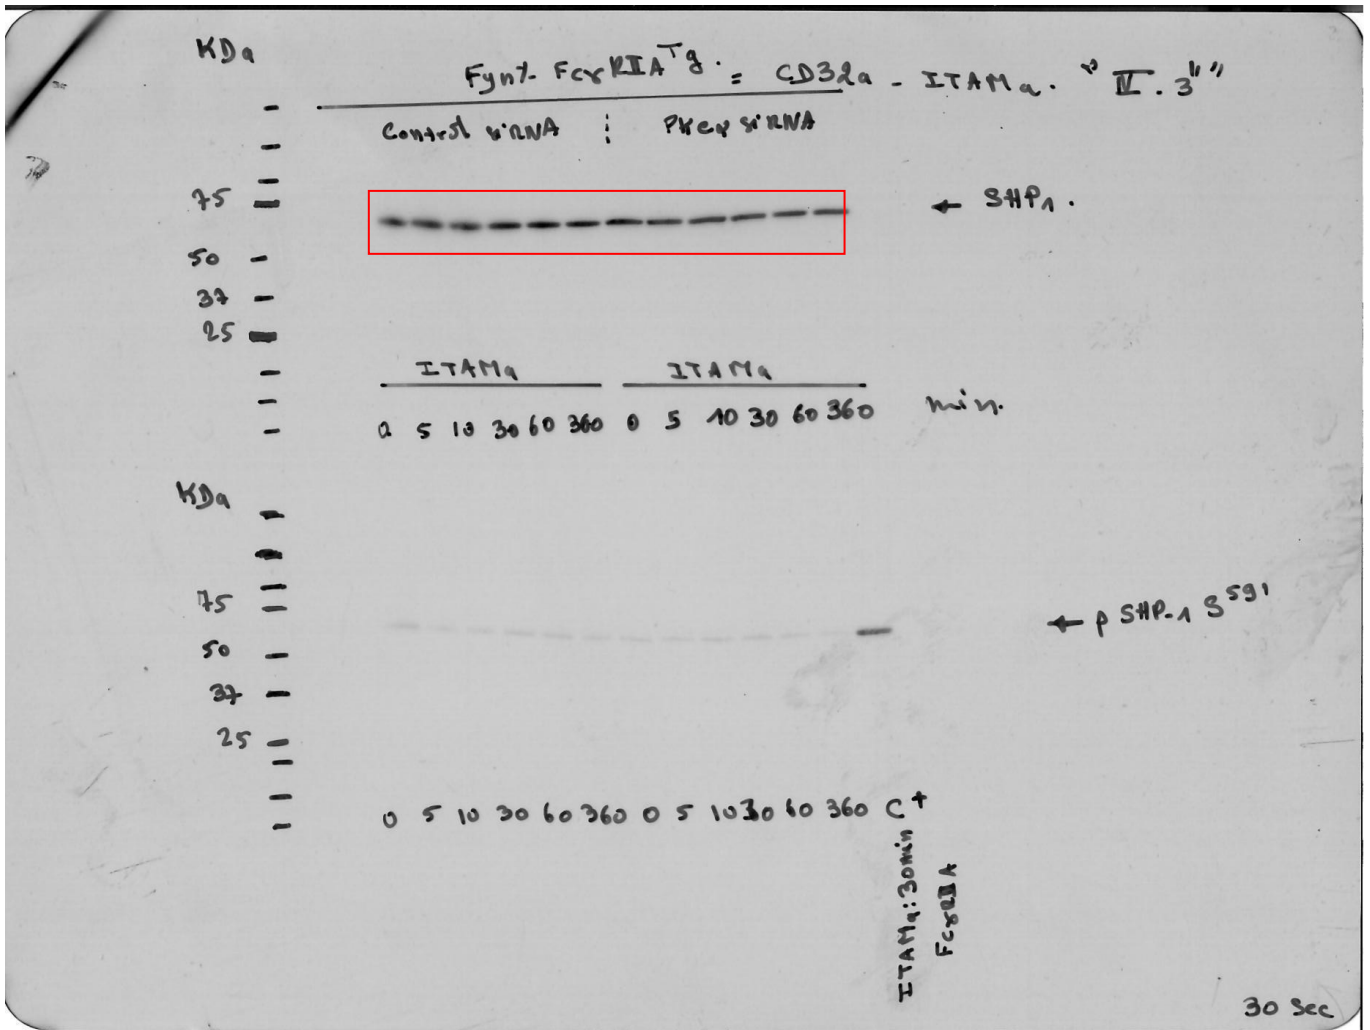 KDa
Fyn⁻/⁻ FcγRIIA Tg. = CD32a - ITAMa. "IV.3"
Control siRNA PKCα siRNA
75
← SHP1.
50
37
25
ITAMa ITAMa
0 5 10 30 60 360 0 5 10 30 60 360 min.
KDa
75
← p SHP-1 S591
50
37
25
0 5 10 30 60 360 0 5 10 30 60 360 C+
ITAMa: 30min
FcγRIIA
30 Sec